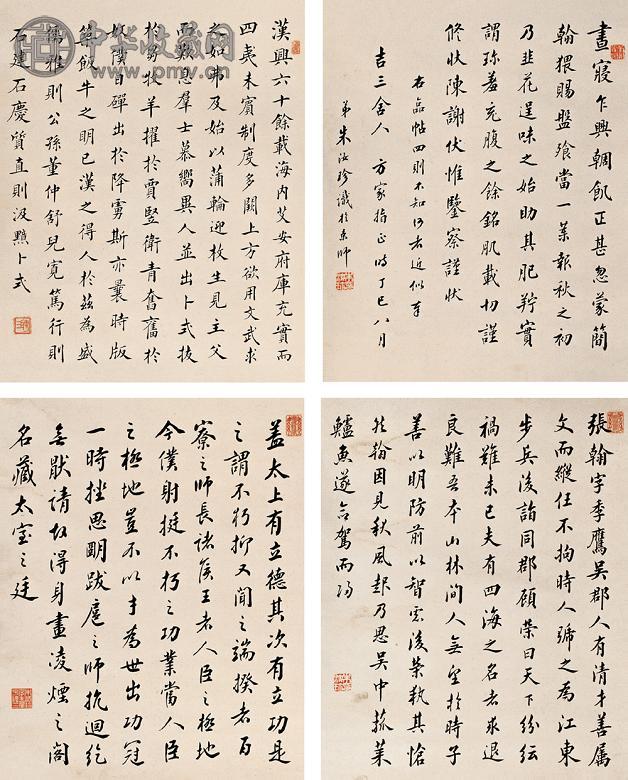 晝寢乍興輖飢正甚忽蒙簡
翰猥賜盤飱當一葉報秋之初
乃韭花逞味之始助其肥羜實
謂珍羞充腹之餘銘肌載切謹
修狀陳謝伏惟鑒察謹狀
右臨帖四則不知近似
吉三舍人 方家指正 時丁巳八月
弟朱汝珍識於京師
中华收藏网
www.pmv.cn
漢興六十餘載海內艾安府庫充實而
四夷未賓制度多闕上方欲用文武求
之如弗及始以蒲輪迎枚生見主父
而歎息羣士慕嚮異人並出卜式拔
於芻牧羊擢於賈豎衛青奮於
奴僕日磾出於降虜斯亦曩時版
築飯牛之明已漢之得人於茲為盛
儒雅則公孫董仲舒兒寬篤行則
石建石慶質直則汲黯卜式
張翰字季鷹吳郡人有清才善屬
文而縱任不拘時人號之為江東
步兵後謂同郡顧榮曰天下紛紜
禍難未已夫有四海之名者求退
良難吾本山林間人無望於時子
善以明防前以智慮後榮執其愴
然翰因見秋風起乃思吳中菰菜
鱸魚遂命駕而歸
蓋太上有立德其次有立功是
之謂不朽抑又聞之端揆者百
寮之師長諸侯王者人臣之極地
今僕射挺不朽之功業當人臣
之極地豈不以才為世出功冠
一時挫思明跋扈之師抗迴紇
無猒請故得身畫凌煙之閣
名藏太室之廷